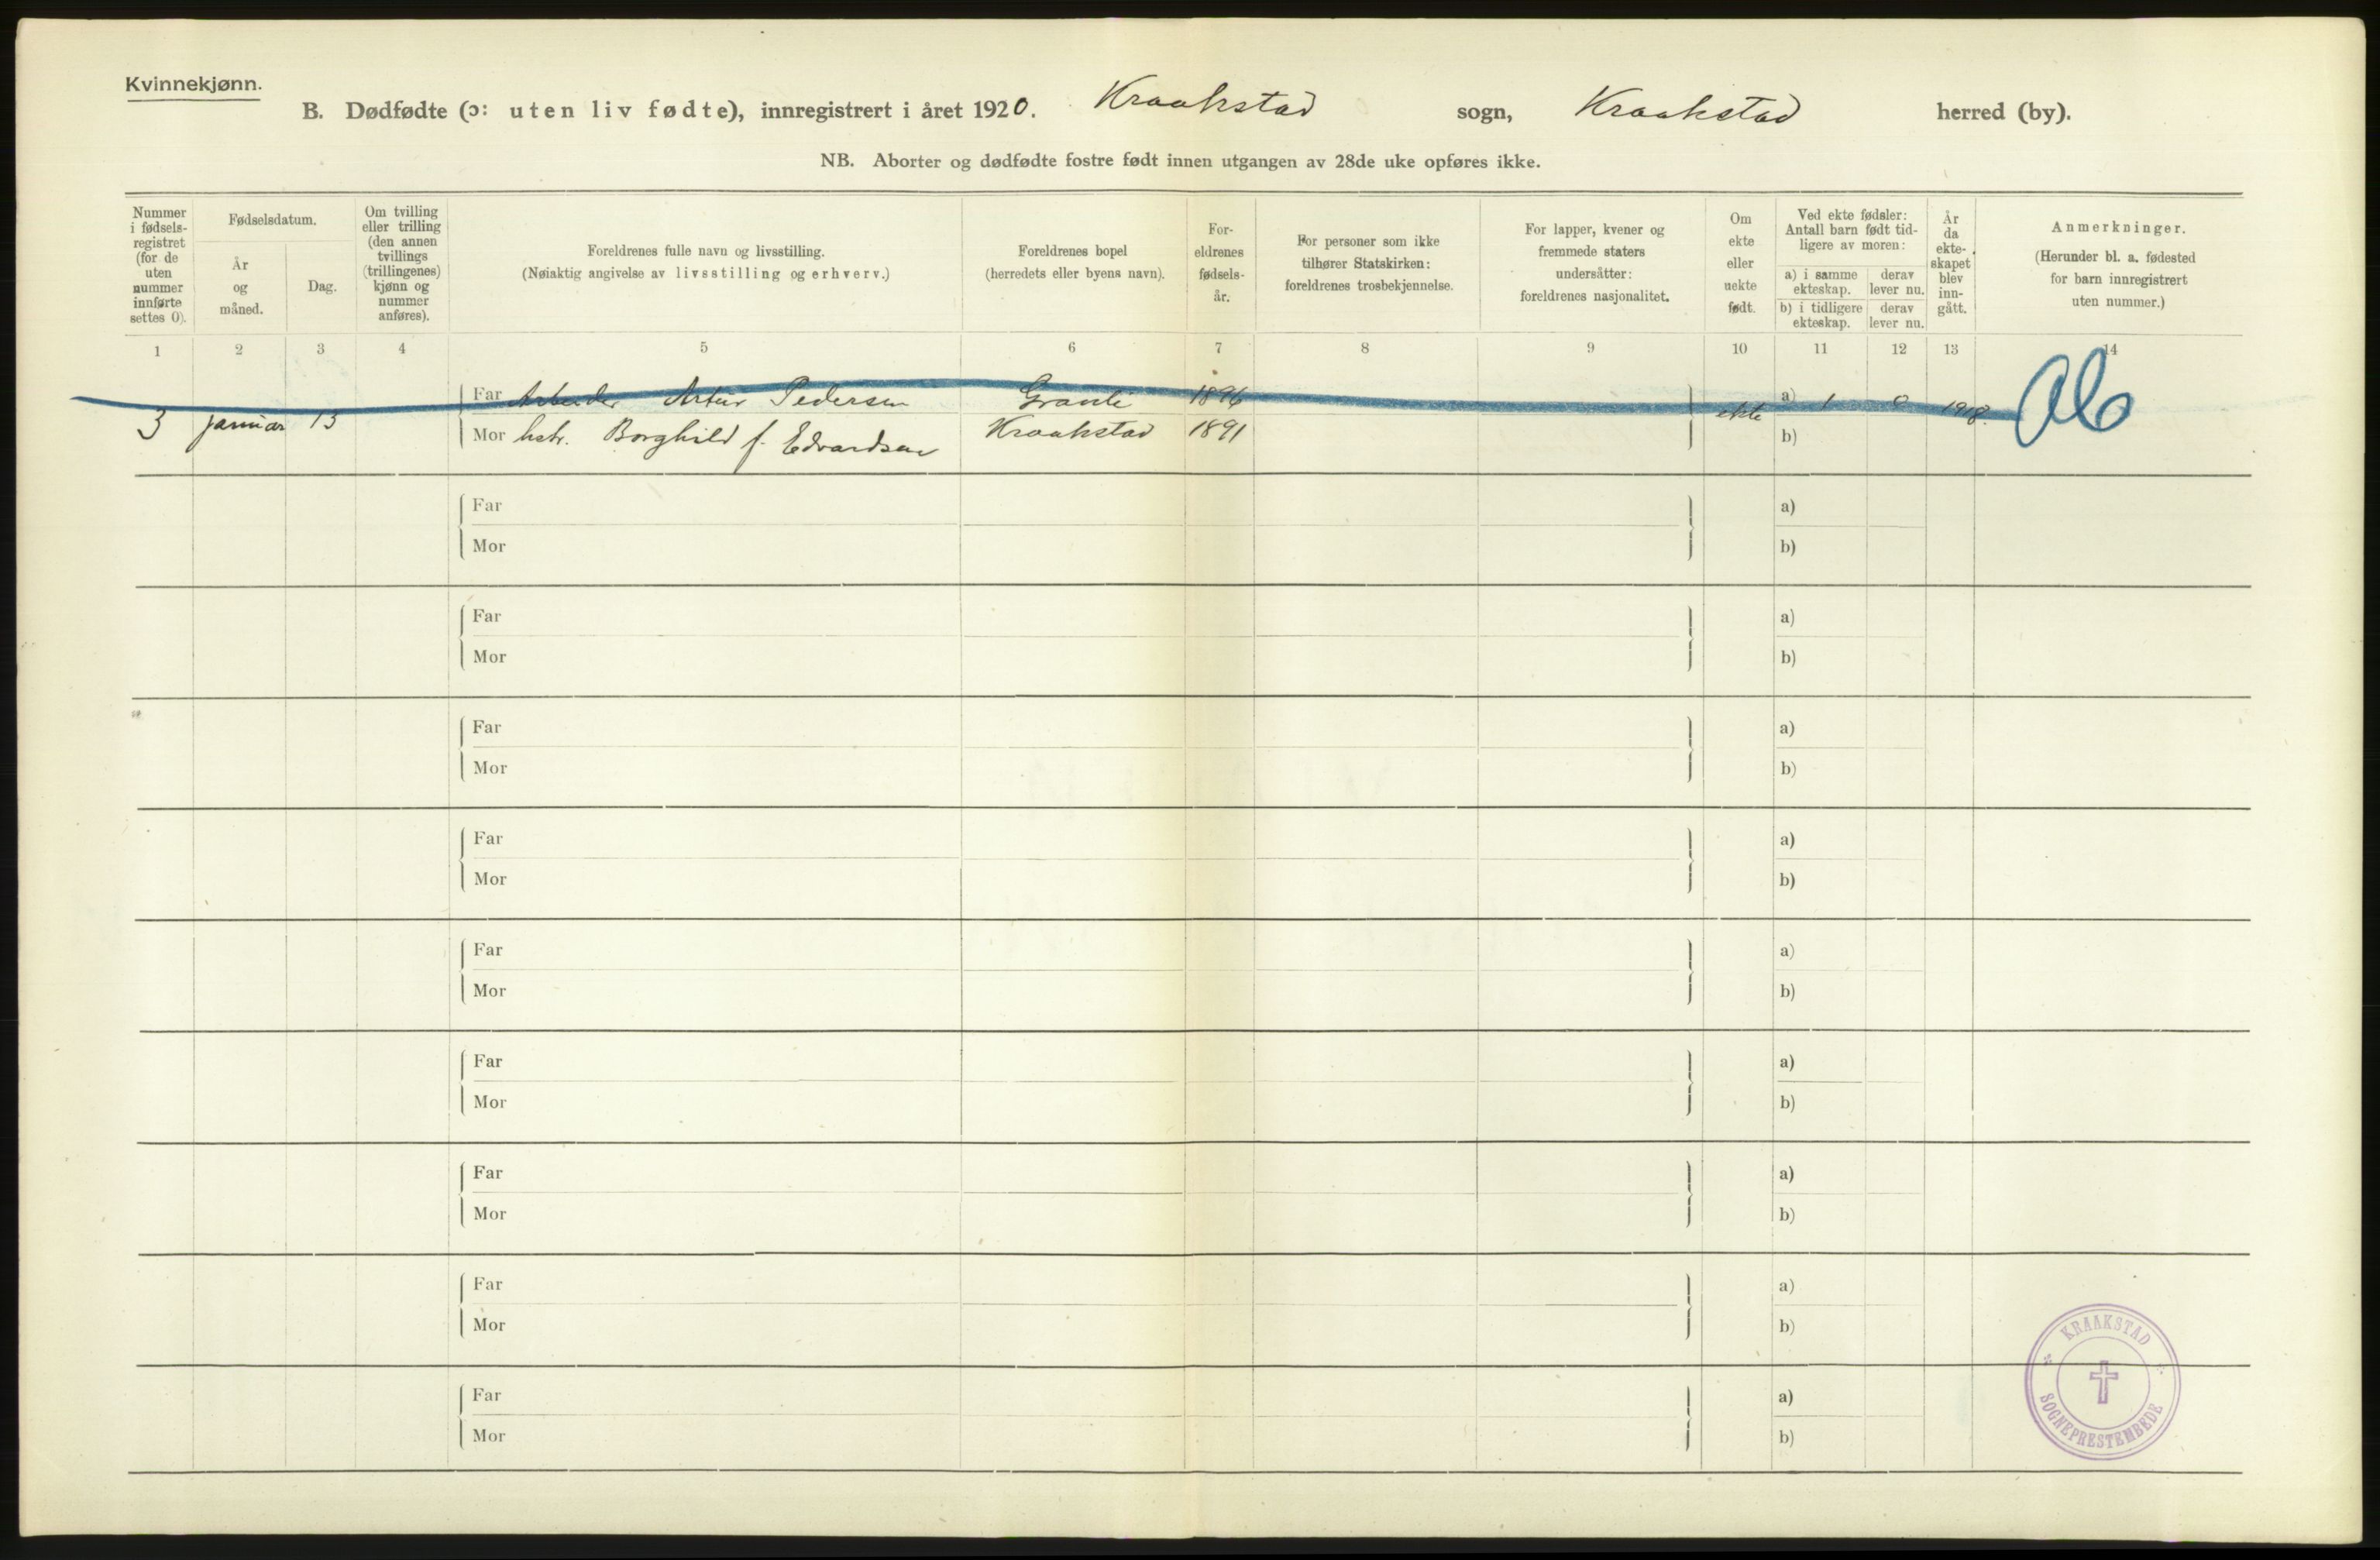 Kvinnekjønn.
B. Dødfødte (ɔ: uten liv fødte), innregistrert i året 1920. Kraakstad sogn, Kraakstad herred (by).
NB. Aborter og dødfødte fostre født innen utgangen av 28de uke opføres ikke.
Nummer
i fødsels-
registret
(for de
uten
nummer
innførte
settes 0).
Fødselsdatum.
År
og
måned.
Dag.
Om tvilling
eller trilling
(den annen
tvillings
(trillingenes)
kjønn og
nummer
anføres).
Foreldrenes fulle navn og livsstilling.
(Nøiaktig angivelse av livsstilling og erhverv.)
Foreldrenes bopel
(herredets eller byens navn).
For-
eldrenes
fødsels-
år.
For personer som ikke
tilhører Statskirken:
foreldrenes trosbekjennelse.
For lapper, kvener og
fremmede staters
undersåtter:
foreldrenes nasjonalitet.
Om
ekte
eller
uekte
født.
Ved ekte fødsler:
Antall barn født tid-
ligere av moren:
a) i samme
ekteskap.
derav
lever nu.
b) i tidligere
ekteskap.
derav
lever nu.
År
da
ekte-
skapet
blev
inn-
gått.
Anmerkninger.
(Herunder bl. a. fødested
for barn innregistrert
uten nummer.)
1 2 3 4 5 6 7 8 9 10 11 12 13 14
Far Arbeider Artur Pedersen 1896 a) 1 0 1918.
3 januar 13 ekte
Mor hstr. Borghild f. Edvardsen Kraakstad 1891 b)
Far a)
Mor b)
Far a)
Mor b)
Far a)
Mor b)
Far a)
Mor b)
Far a)
Mor b)
Far a)
Mor b)
Far a)
Mor b)
Far a)
Mor b)
Far a)
Mor b)
KRAAKSTAD
SOGNEPRESTEMBEDE